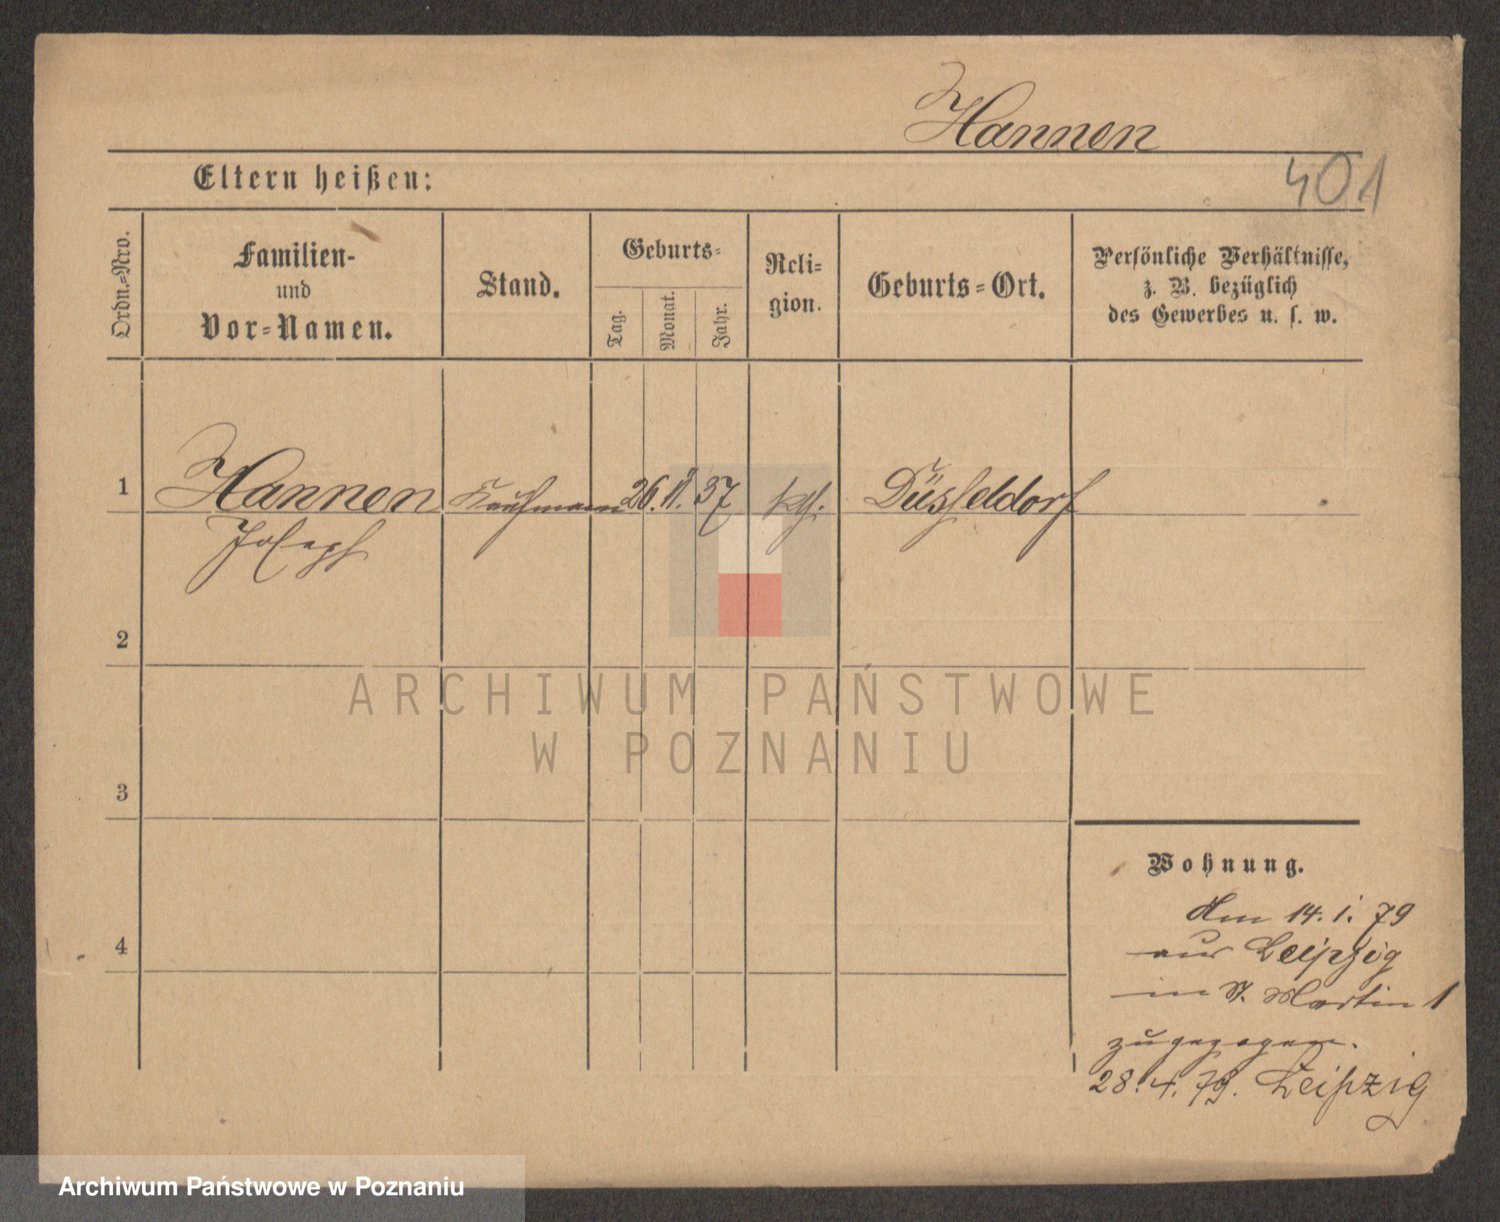 Hannen
401
Eltern heißen:
Ordn.-Nro.
Familien-
und
Vor-Namen.
Stand.
Geburts-
Tag.
Monat.
Jahr.
Reli-
gion.
Geburts-Ort.
Persönliche Verhältnisse,
z. B. bezüglich
des Gewerbes u. s. w.
1 Hannen Kaufmann 26. 11. 37 kth. Düsseldorf
Joseph
2
ARCHIWUM PAŃSTWOWE
W POZNANIU
3
Wohnung.
Am 14. 1. 79
aus Leipzig
in St. Martin 1
zugezogen.
28. 4. 79. Leipzig
4
Archiwum Państwowe w Poznaniu